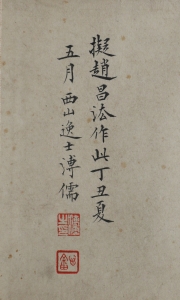 擬趙昌法作此丁丑夏
五月西山逸士溥儒